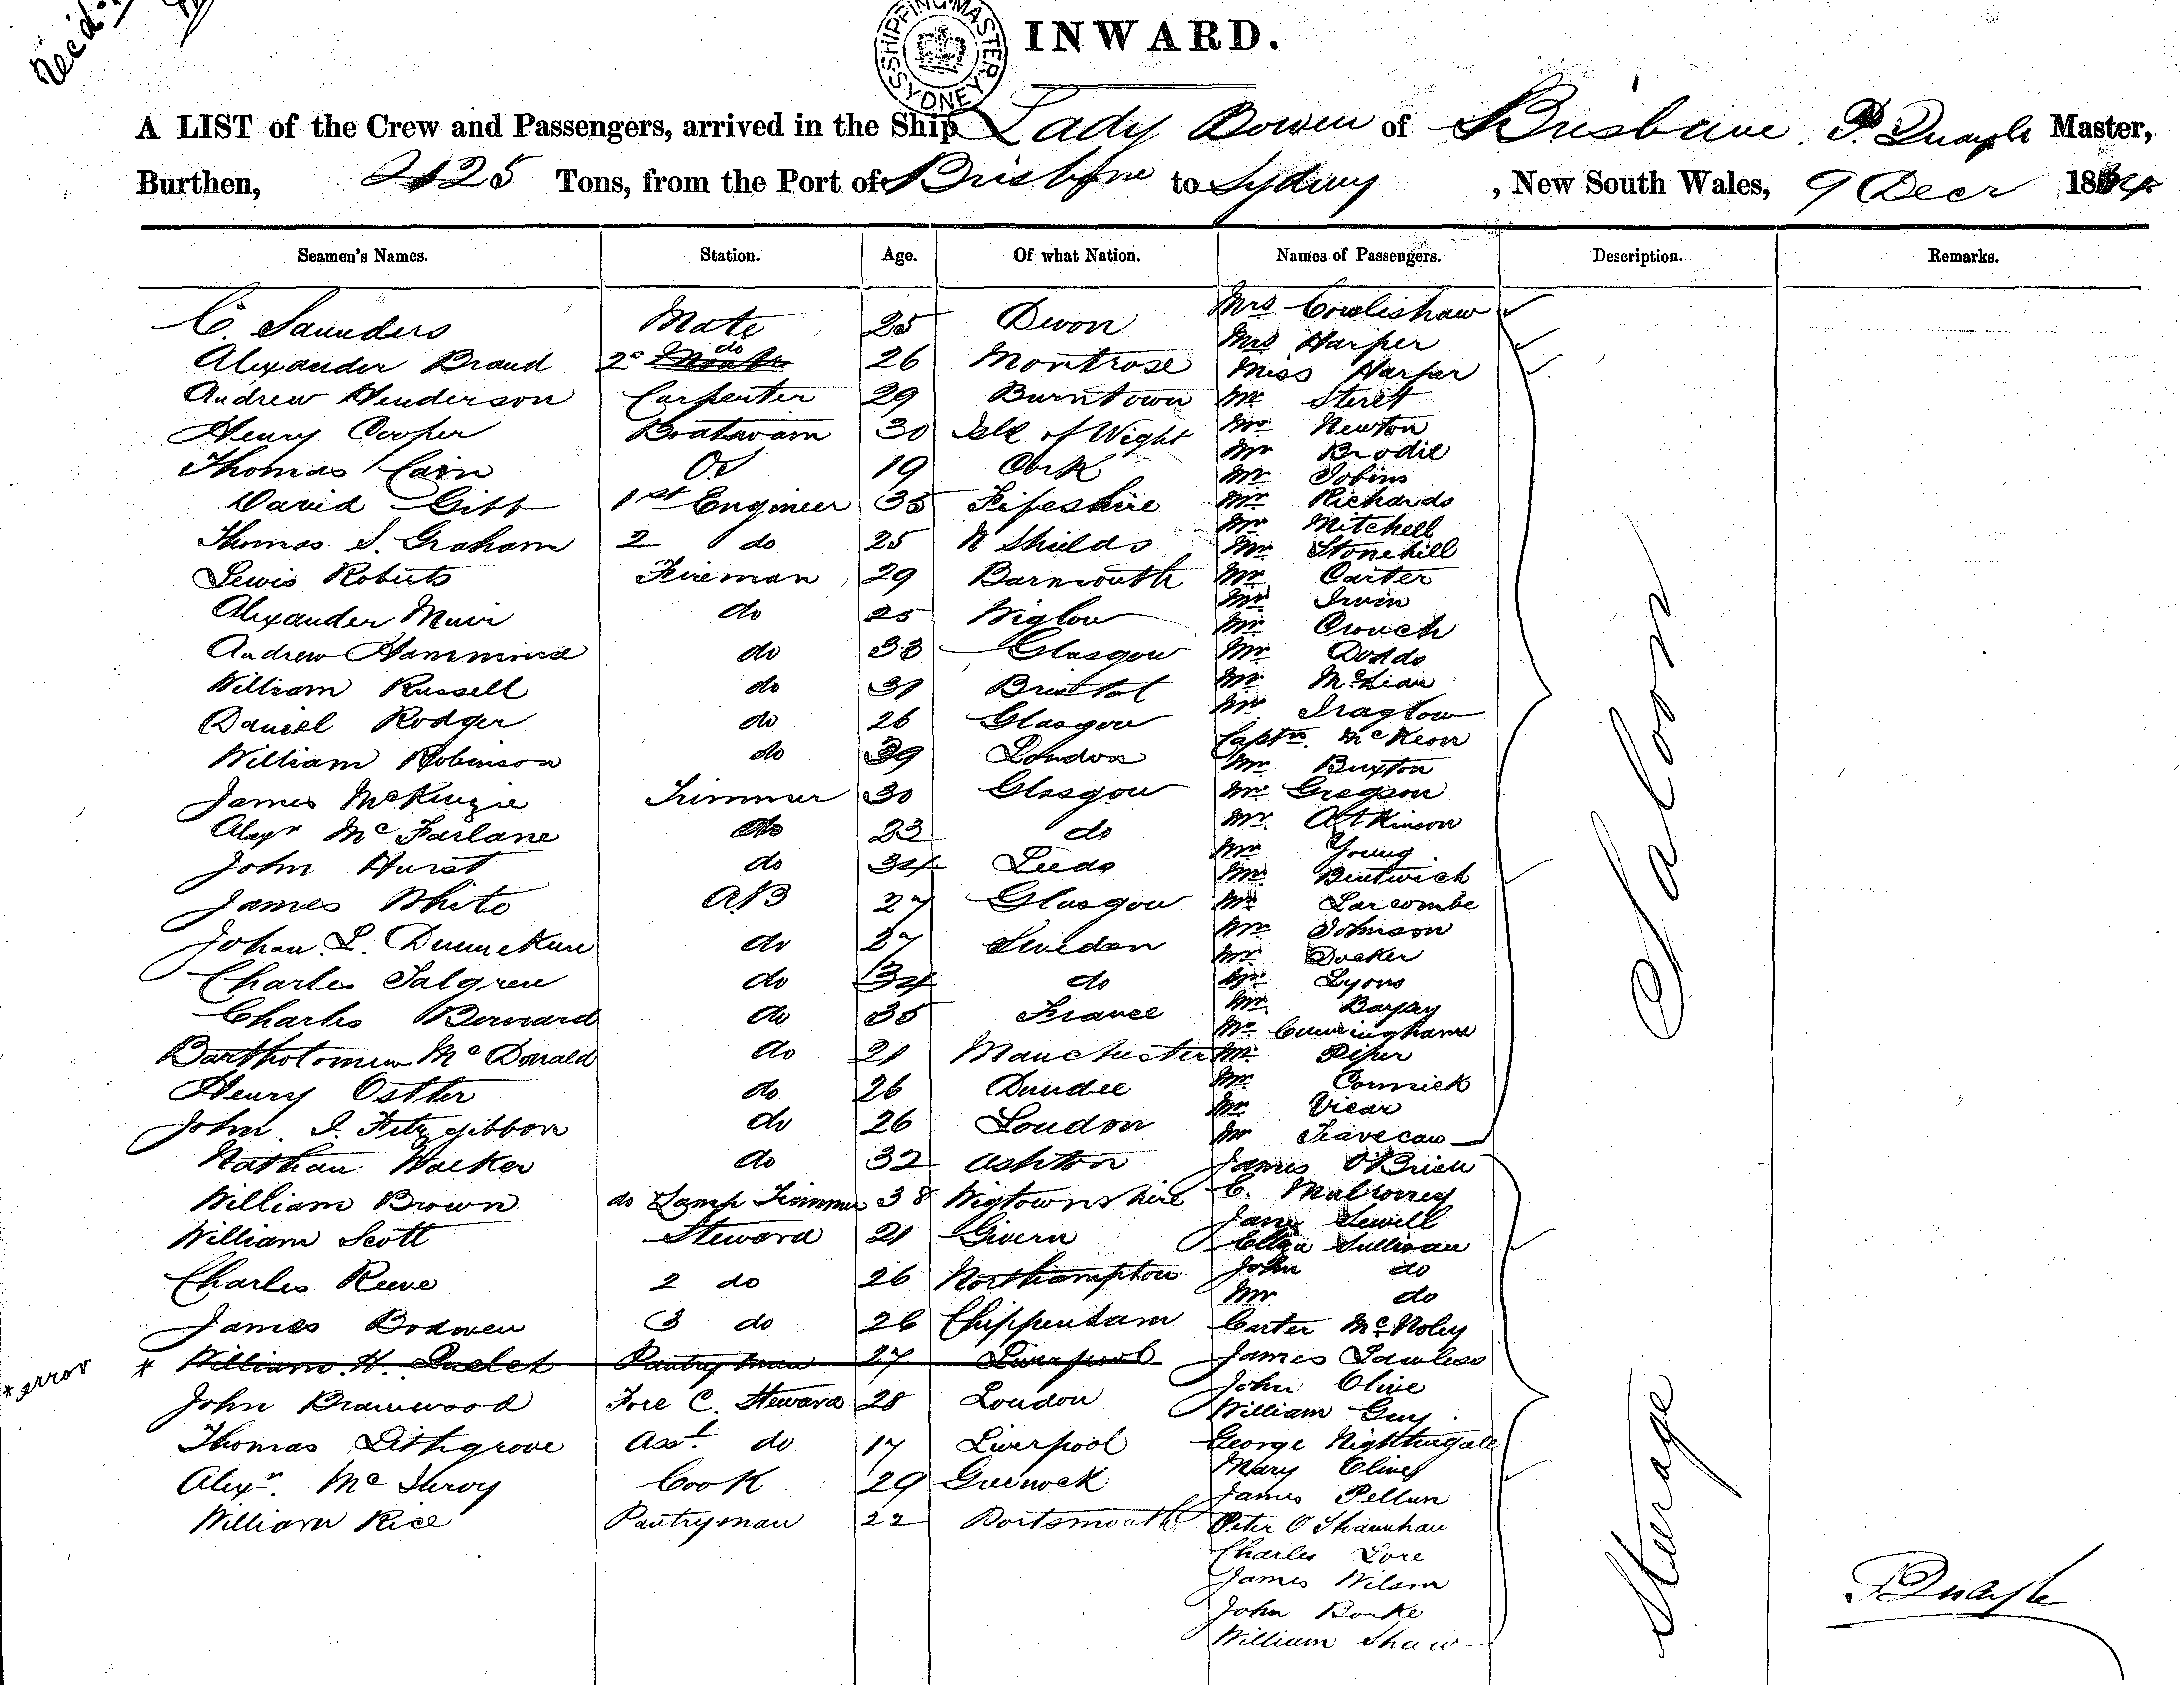 Recd
SHIPPING MASTER SYDNEY
INWARD.
A LIST of the Crew and Passengers, arrived in the Ship Lady Bowen of Brisbane P. Quayle Master,
Burthen, 425 Tons, from the Port of Brisbane to Sydney, New South Wales, 9 Decr 1864
Seamen's Names. Station. Age. Of what Nation. Names of Passengers. Description. Remarks.
C. Saunders Mate 25 Devon Mrs Cowlishaw
Mrs Harper
Alexander Brand 2d do 26 Montrose Miss Harper
Andrew Henderson Carpenter 29 Burntown Mr Steret
Henry Cooper Boatswain 30 Isle of Wight Mr Newton
Mr Brodie
Thomas Cain OS 19 Cork Mr Tobins
David Gibb 1st Engineer 35 Fifeshire Mr Richards
Mr Mitchell
Thomas S. Graham 2 do 25 N Shields Mr Stonehill
Lewis Roberts Fireman 29 Barmouth Mr Carter
Mr Irvin
Alexander Muir do 25 Wiglow Mr Crouch
Andrew Hammond do 33 Glasgow Mr Dodds
William Russell do 31 Bristol Mr McLean
Daniel Rodger do 26 Glasgow Mr
Captn. McKeon
William Robinson do 39 London Mr Buxton
James McKenzie Trimmer 30 Glasgow Mr Gregson
Alexr McFarlane do 23 do Mr Atkinson
Mr Young
John Hurst do 34 Leeds Mr Bentwich
James White AB 27 Glasgow Mr Larcombe
Mr Johnson
Johan L. do 27 Sweden Mr Docker
Charles Salgren do 34 do Mr Lyons
Charles Bernard do 35 France Mr Barclay
Mr Cunningham
Bartholomew McDonald do 21 Manchester Mr Piper
Henry Ostler do 26 Dundee Mr Cormick
Mr Vicar
John J. Fitzgibbon do 26 London Mr
Saloon
Nathan Walker do 32 Ashton James O'Brien
William Brown do Lamp Trimmer 38 Wigtownshire C. Mulroney
Jane Sewell
William Scott Steward 21 Girvan Ellen Sullivan
Charles Reeve 2 do 26 Northampton John do
Mr do
James Bodwen 3 do 26 Chippenham Carter McNoley
* error * William H. Pantry man 27 Liverpool James Lawless
John Bramwood Fore C. Steward 28 London John Clive
William Guy
Thomas Lithgrove Asst. do 17 Liverpool George Nightingale
Alexr. McIlroy Cook 29 Greenock Mary Clives
James Pellun
William Rice Pantryman 22 Portsmouth Peter O Shaunhau
Charles Lore
James Wilson
John Bourke
William Shaw
Steerage
P Quayle